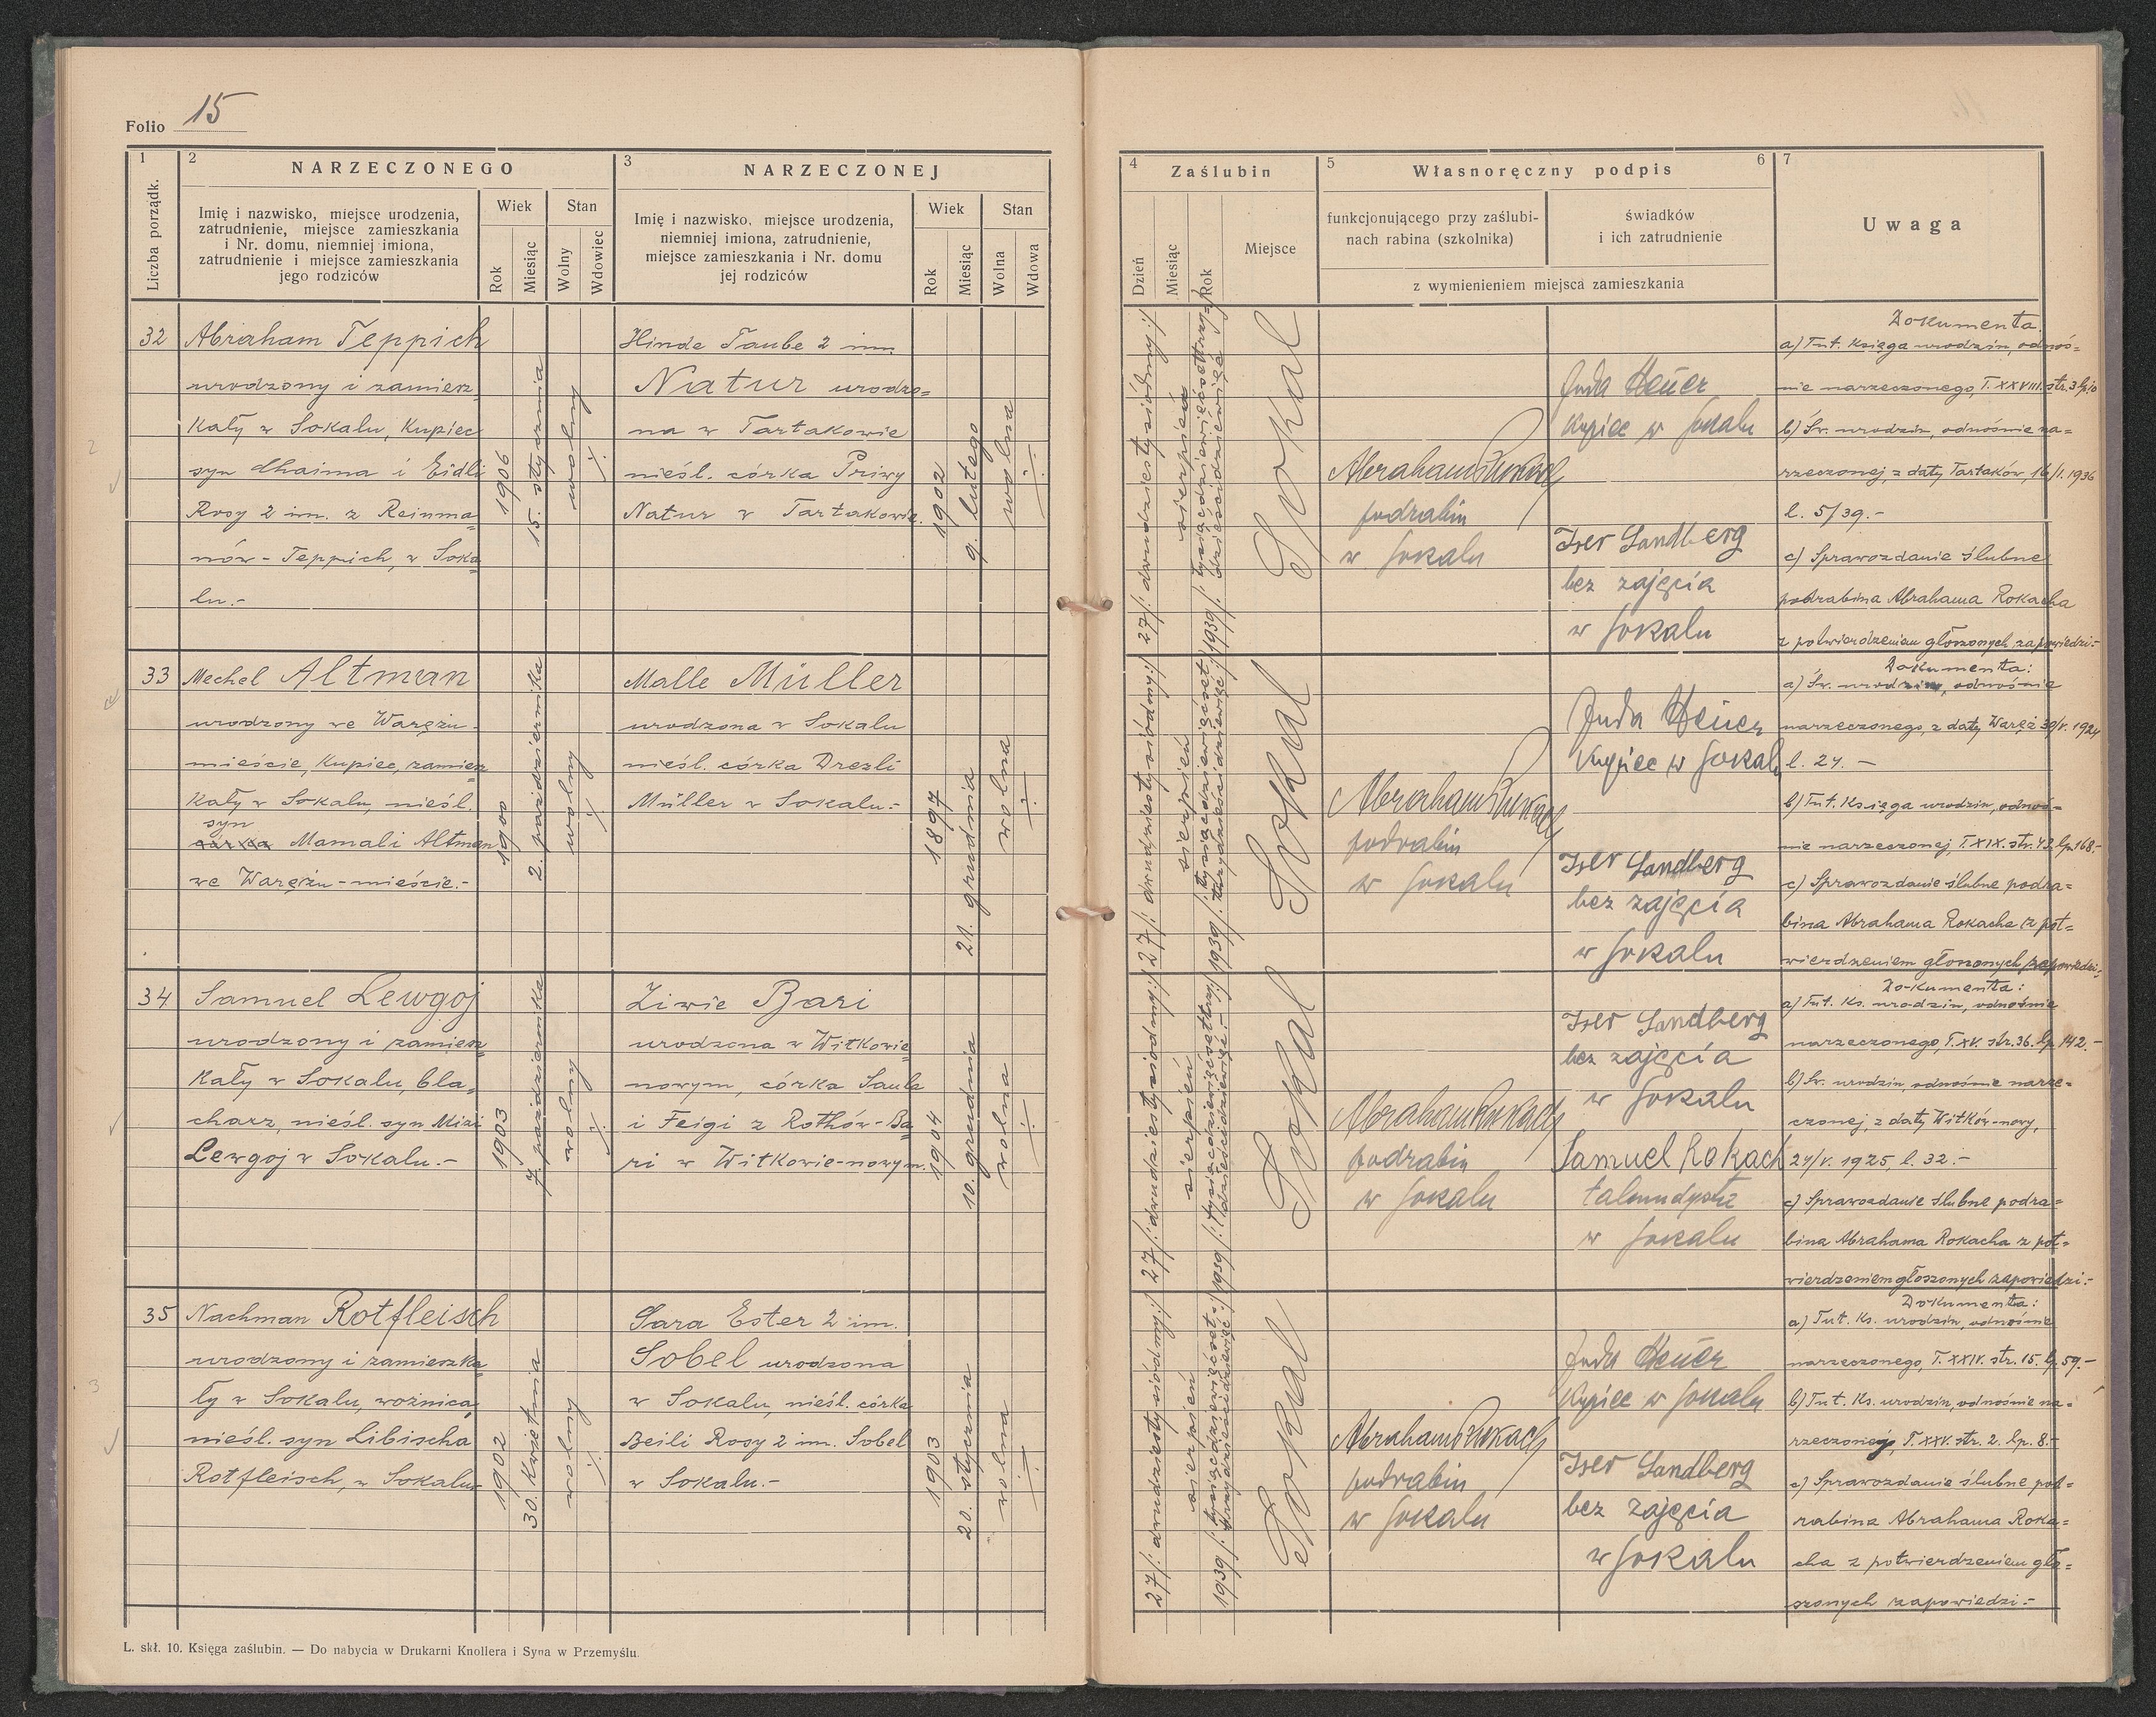 Folio 15
1
2
NARZECZONEGO
3
NARZECZONEJ
Liczba porządk.
Imię i nazwisko, miejsce urodzenia,
zatrudnienie, miejsce zamieszkania
i Nr. domu, niemniej imiona,
zatrudnienie i miejsce zamieszkania
jego rodziców
Wiek
Stan
Rok
Miesiąc
Wolny
Wdowiec
Imię i nazwisko, miejsce urodzenia,
niemniej imiona, zatrudnienie,
miejsce zamieszkania i Nr. domu
jej rodziców
Wiek
Stan
Rok
Miesiąc
Wolna
Wdowa
32
Abraham Teppich
urodzony i zamiesz
kały w Sokalu, kupiec
syn Chaima i Eidli
Rosy 2 im. z Reinma=
nów - Teppich, w Soka
lu.-
1906
15. stycznia
wolny
Hinde Taube 2 im.
Natur urodzo=
na w Tartakowie
nieśl. córka Priwy
Natur w Tartakowie.
1902
9. lutego
wolna
33
Mechel Altman
urodzony we Warężu-
mieście, kupiec, zamiesz
kały w Sokalu, nieśl.
syn
córka Mamali Altman
we Warężu-mieście.-
1900
2. października
wolny
Malle Müller
urodzona w Sokalu
nieśl. córka Drezli
Müller w Sokalu.-
1897
21. grudnia
wolna
34
Samuel Lewgoj
urodzony i zamiesz=
kały w Sokalu, bla=
charz, nieśl. syn Mizi
Lewgoj w Sokalu.-
1903
7. października
wolny
Ziwie Bari
urodzona w Witkowie
nowym, córka Saula
i Feigi z Rothów-Ba
ri w Witkowie-nowym.
1904
10. grudnia
wolna
35
Nachman Rotfleisch
urodzony i zamieszka
ły w Sokalu, woźnica
nieśl. syn Libischa
Rotfleisch, w Sokalu
1902
30. kwietnia
wolny
Sara Ester 2 im.
Sobel urodzona
w Sokalu, nieśl. córka
Beili Rosy 2 im. Sobel
w Sokalu.-
1903
20. stycznia
wolna
L. skł. 10. Księga zaślubin. — Do nabycia w Drukarni Knollera i Syna w Przemyślu.
4
Zaślubin
5
Własnoręczny podpis
6
7
Uwaga
Dzień
Miesiąc
Rok
Miejsce
funkcjonującego przy zaślubi-
nach rabina (szkolnika)
świadków
i ich zatrudnienie
z wymienieniem miejsca zamieszkania
27/: dwudziesty siódmy:/
sierpień
1939/: tysiąc dziewięćset trzy=
dzieści dziewięć
Sokal
Abraham Rokach
podrabin
w Sokalu
Juda Heuer
Kupiec w Sokalu
Iser Sandberg
bez zajęcia
w Sokalu
Dokumenta.
a) Tut. księga urodzin, odnoś=
nie narzeczonego, T. XXVIII. str. 3 lp. 10
b) Św. urodzin, odnośnie na=
rzeczonej, z daty Tartaków, 16/1. 1936
l. 5/39.-
c) Sprawozdanie ślubne
podrabina Abrahama Rokacha
z potwierdzeniem głoszonych zapowiedzi.-
27/: dwudziesty siódmy:/
sierpień
1939/: tysiąc dziewięćset
trzydzieści dziewięć:/
Sokal
Abraham Rokach
podrabin
w Sokalu
Juda Heuer
Kupiec w Sokalu
Iser Sandberg
bez zajęcia
w Sokalu
Dokumenta:
a) Św. urodzin, odnośnie
narzeczonego, z daty Waręż 30/V. 1924
l. 24. -
b) Tut. Księga urodzin, odnoś=
nie narzeczonej, T. XIX. str. 43. lp. 168.-
c) Sprawozdanie ślubne podra=
bina Abrahama Rokacha z pot=
wierdzeniem głoszonych zapowiedzi.
27/: dwudziesty siódmy:/
sierpień
1939/: tysiąc dziewięćset trzy
dzieści dziewięć.-
Sokal
Abraham Rokach
podrabin
w Sokalu
Iser Sandberg
bez zajęcia
w Sokalu
Samuel Rokach
talmudysta
w Sokalu
Dokumenta:
a) Tut. Ks. urodzin, odnośnie
narzeczonego, T. XV. str. 36. lp. 142.-
b) Św. urodzin, odnośnie narze=
czonej, z daty Witków-nowy,
24/V. 1925, l. 32.-
c) Sprawozdanie ślubne podra=
bina Abrahama Rokacha z pot=
wierdzeniem głoszonych zapowiedzi.-
27/: dwudziesty siódmy:/
sierpień
1939/: tysiąc dziewięćset
trzydzieści dziewięć:/
Sokal
Abraham Rokach
podrabin
w Sokalu
Juda Heuer
Kupiec w Sokalu
Iser Sandberg
bez zajęcia
w Sokalu
Dokumenta:
a) Tut. Ks. urodzin, odnośnie
narzeczonego, T. XXIV. str. 15. lp. 59.-
b) Tut. Ks. urodzin, odnośnie na=
rzeczonej, T. XXV. str. 2. lp. 8.-
c) Sprawozdanie ślubne pod=
rabina Abrahama Roka=
cha z potwierdzeniem gło=
szonych zapowiedzi.-